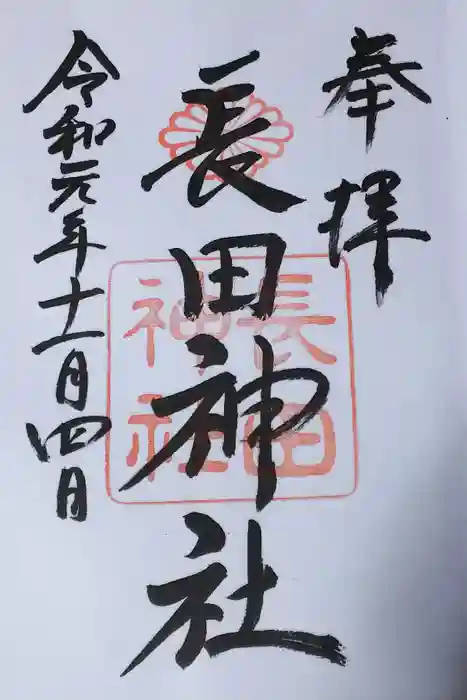 奉拝
長田神社
長田
神社
令和元年十一月四月